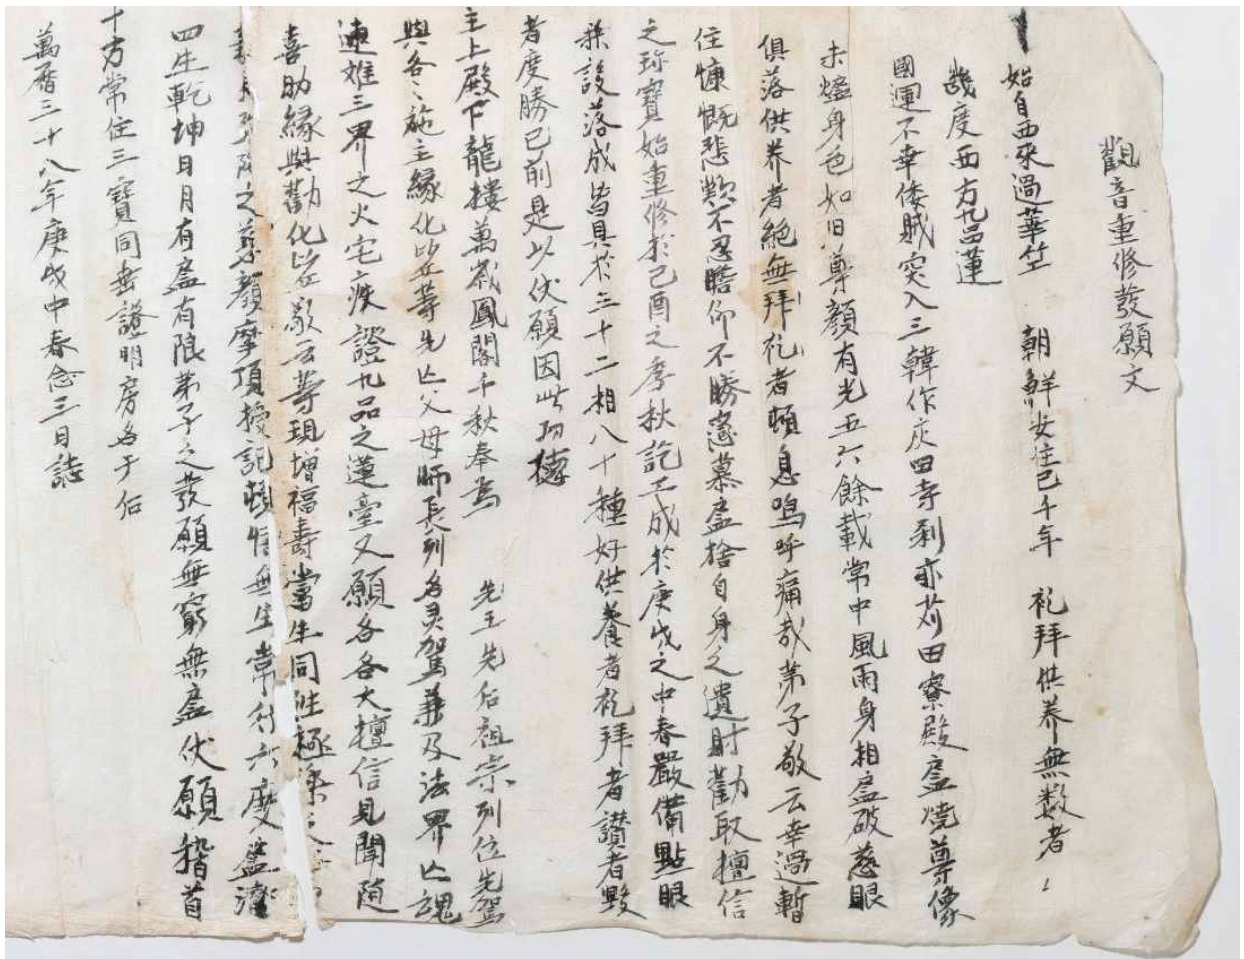 觀音重修發願文
始自西來過華竺 朝鮮安住已千年 礼拜供养無数者
幾度西方九品蓮
國運不幸倭贼突入三韓作灰四寺刹亦苅田寮殿盡燒尊像
未燼身色如旧尊顔有光五六餘載常中風雨身相盡破慈眼
俱落供养者絕無拜礼者頓息嗚呼痛哉弟子敬云幸過暫
住慷慨悲歎不忍瞻仰不勝恋慕盡捨自身之遺財勸取檀信
之珎寶始重修於己酉之季秋訖工成於庚戌之中春嚴備點眼
兼設落成皆具於三十二相八十種好供養者礼拜者讃者毁
者度勝已前是以伏願因此功德
主上殿下龍樓萬歲鳳閣千秋奉爲 先王先后祖宗列位先駕
與各〻施主緣化比丘等先亡父母師長列名灵駕兼及法界亡魂
速难三界之火宅疾證九品之蓮臺又願各各大檀信見聞随
喜助緣與勸化比丘敬云等現增福壽當生同生極樂
之慈顔摩頂授記頓悟無生常行六度盡濟
四生乾坤日月有盡有限弟子之發願無窮無盡伏願稽首
十方常住三寶同垂證明房名于后
萬曆三十八年庚戌中春念三日誌